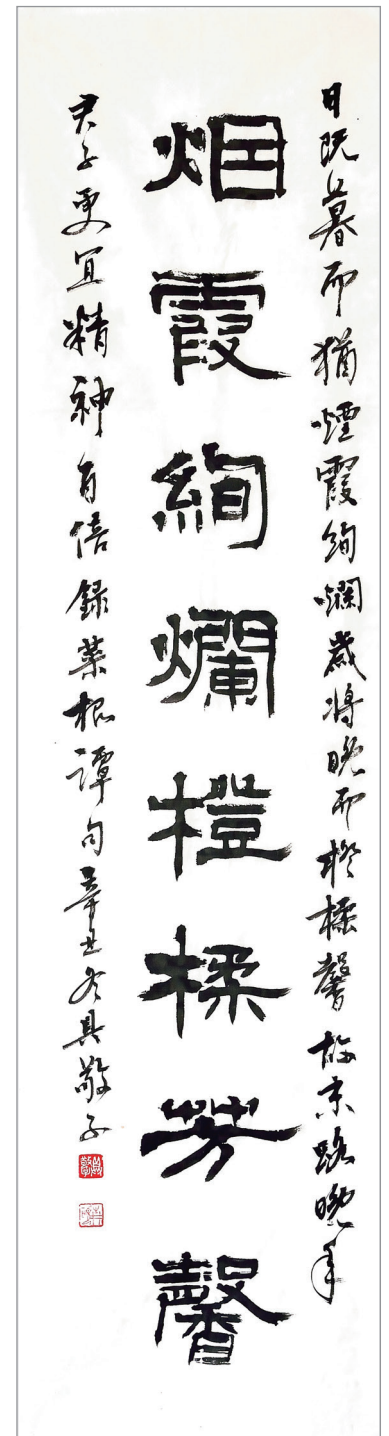 日既暮而猶煙霞絢爛歲將晚而橙楺馨故末路晚年
烟霞絢爛橙楺芳馨
君子更宜精神百倍錄菜根譚句辛丑冬具敬子